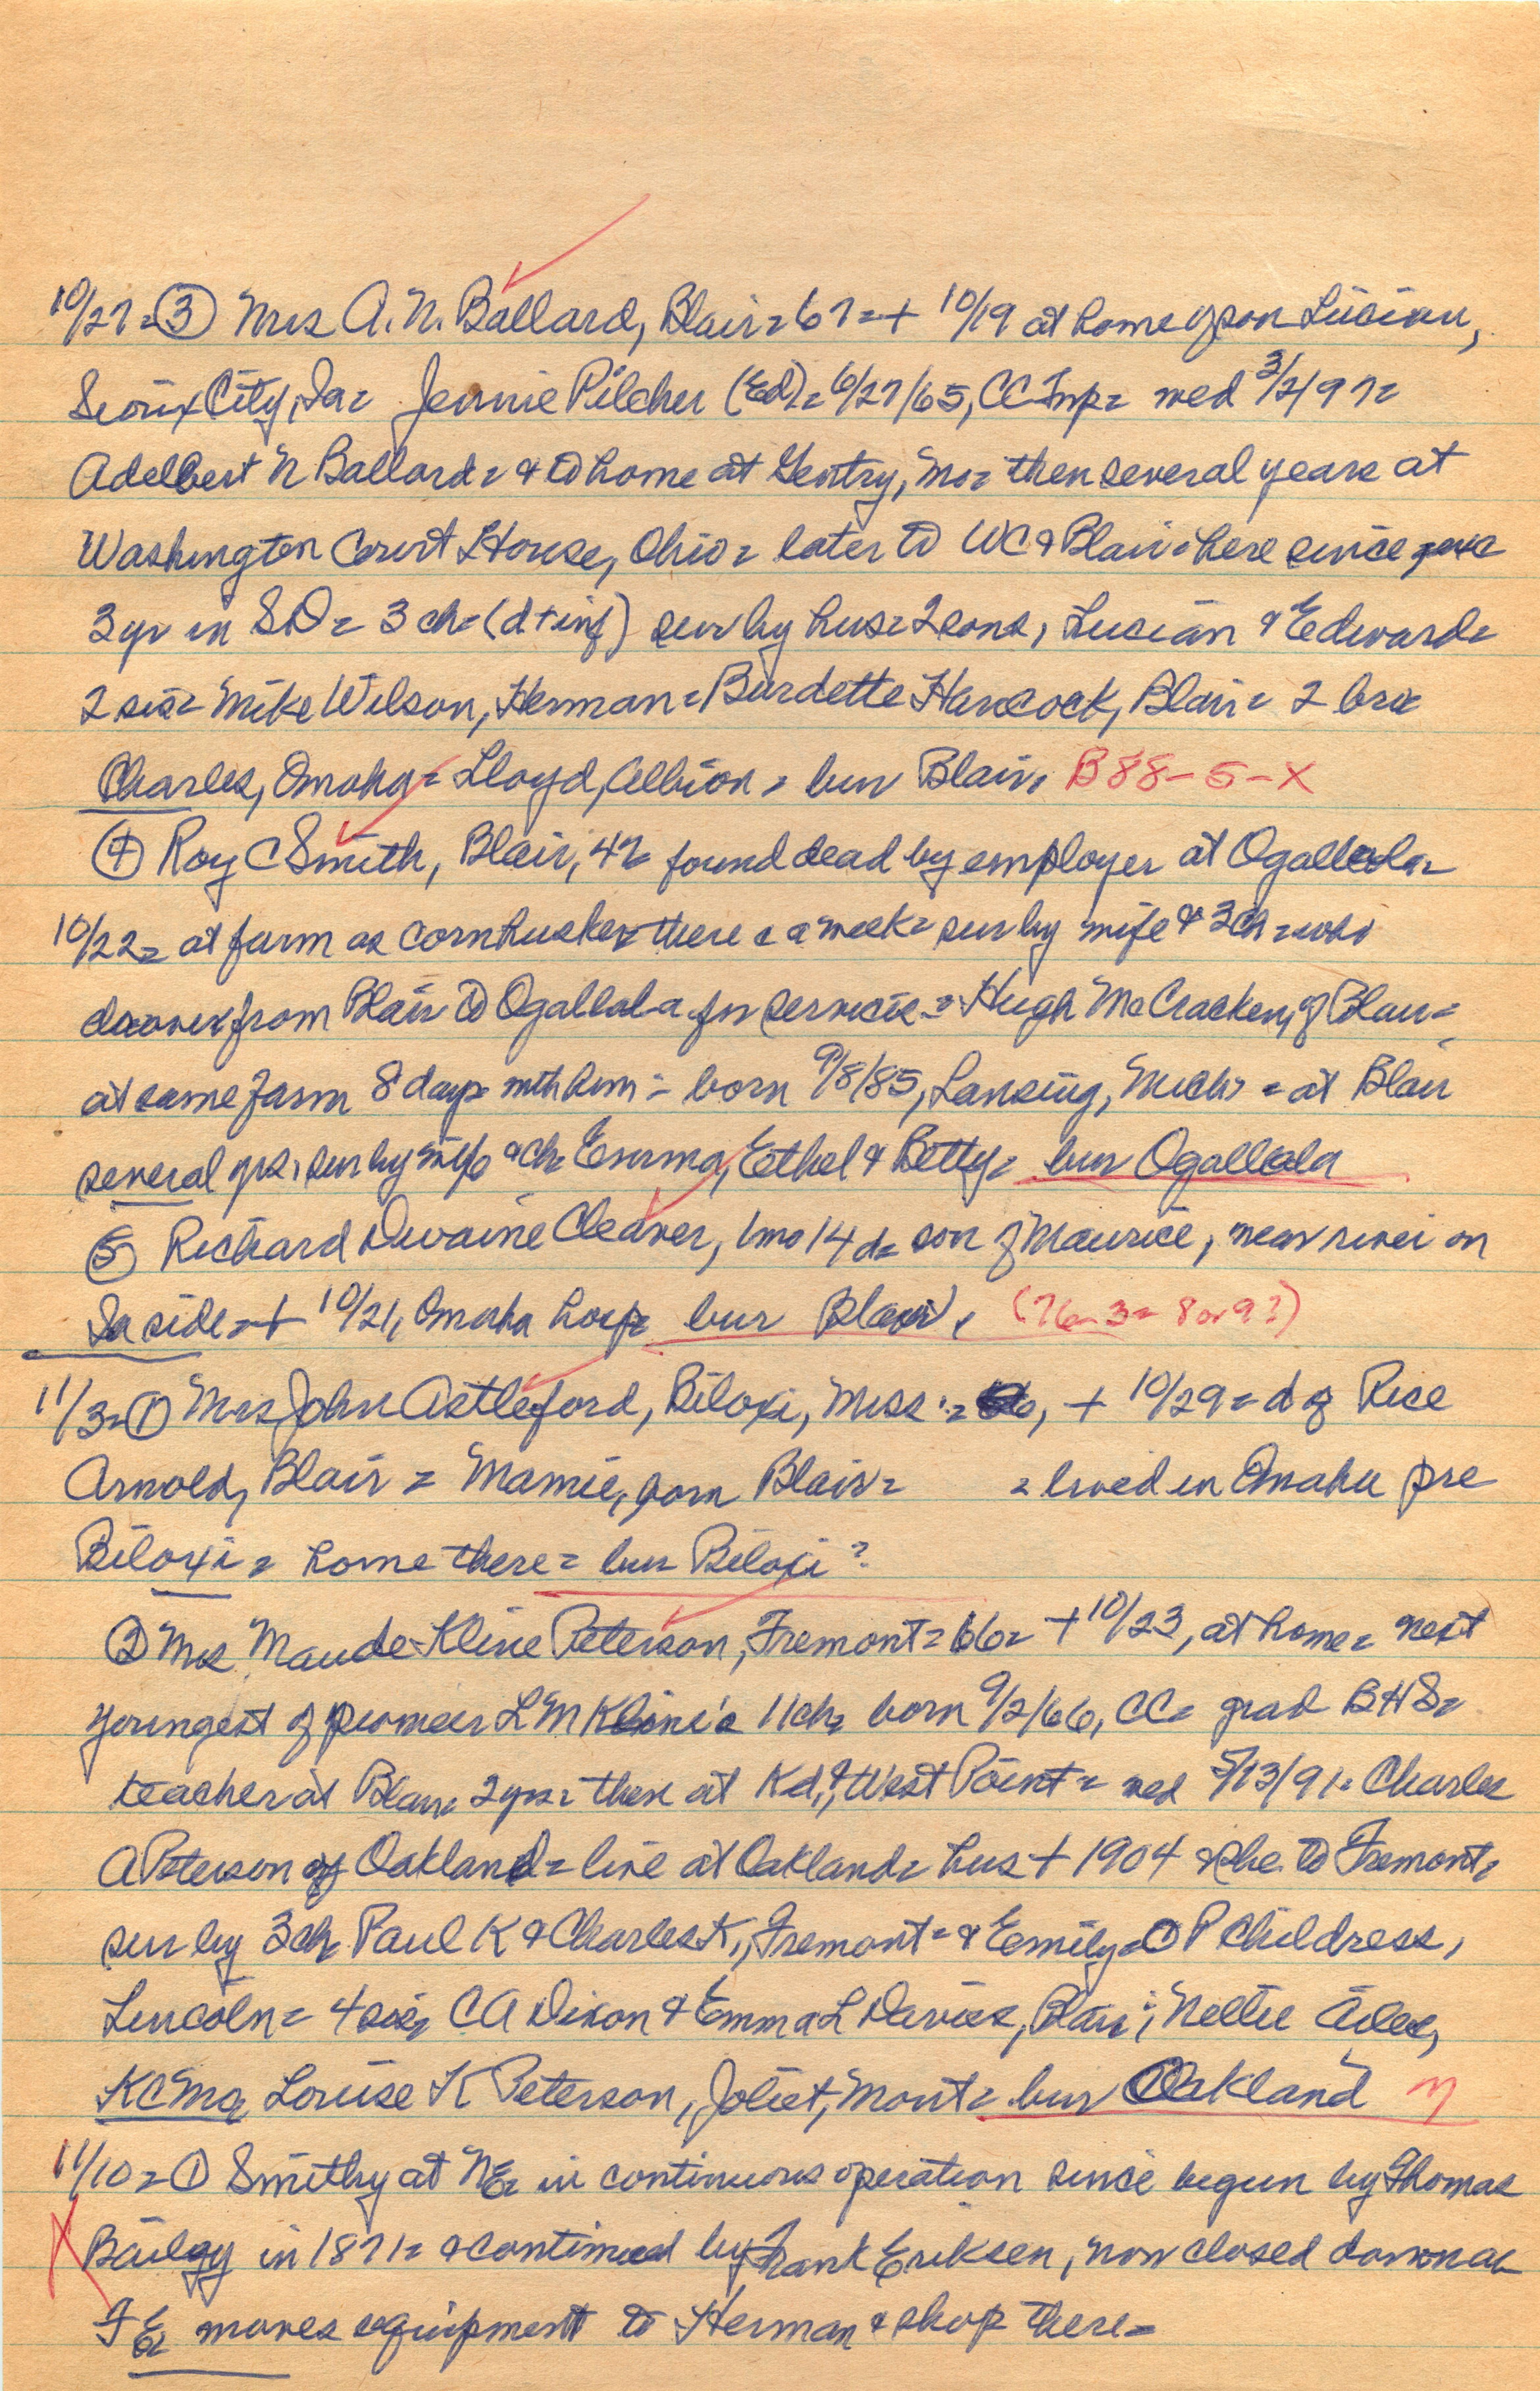 10/27 = ③ Mrs A. N. Ballard, Blair = 67 = + 10/19 at home of son Lucian,
Sioux City, Ia = Jennie Pilcher (Ed) = 6/27/65, CC Twp = wed 3/2/97 =
Adelbert N Ballard = & to home at Gentry, Mo = then several years at
Washington Court House, Ohio = later to WC & Blair = here since
3 yr in SD = 3 ch = (d + inf) sur by hus = 2 sons, Lucian & Edward =
2 sis = Mike Wilson, Herman = Burdette Hancock, Blair = 2 bro =
Charles, Omaha = Lloyd, Albion = bur Blair. B88-5-X
④ Roy C Smith, Blair, 47 = found dead by employer at Ogallala =
10/22 = at farm as cornhusker there a week = sur by wife & 3 ch = who
drove from Blair to Ogallala for services = Hugh McCracken, of Blair =
at same farm 8 days with him = born 9/8/85, Lansing, Mich = at Blair
several yrs, sur by wife & ch = Emma, Ethel & Betty = bur Ogallala
⑤ Richard Dwaine Cleaver, 1 mo 14 d = son of Maurice, near river on
Ia side = + 10/21, Omaha hosp = bur Blair. (76-3 = 8 or 9?)
11/3 = ① Mrs John Astleford, Biloxi, Miss. =, + 10/29 = d of Rice
Arnold, Blair = Mamie, born Blair = = lived in Omaha pre
Biloxi = home there = bur Biloxi?
② Mrs Maude Kline Peterson, Fremont = 66 = + 10/23, at home = next
youngest of pioneer L M Kline's 11 ch = born 9/2/66, CC = grad BHS =
teacher at Blair 2 yrs = then at Kd, & West Point = wed 5/13/91 = Charles
A Peterson of Oakland = live at Oakland = hus + 1904 & she to Fremont =
sur by 3 ch = Paul K & Charles K, Fremont = & Emily = O P Childress,
Lincoln = 4 sis = C A Dixon & Emma L Davies, Blair; Nellie
KC Mo, Louise K Peterson, Joliet, Mont = bur Oakland M
11/10 = ① Smithy at NE = in continuous operation since begun by Thomas
X in 1871 = & continued by Frank Eriksen, now closed down as
F E = moves equipment to Herman & shop there =